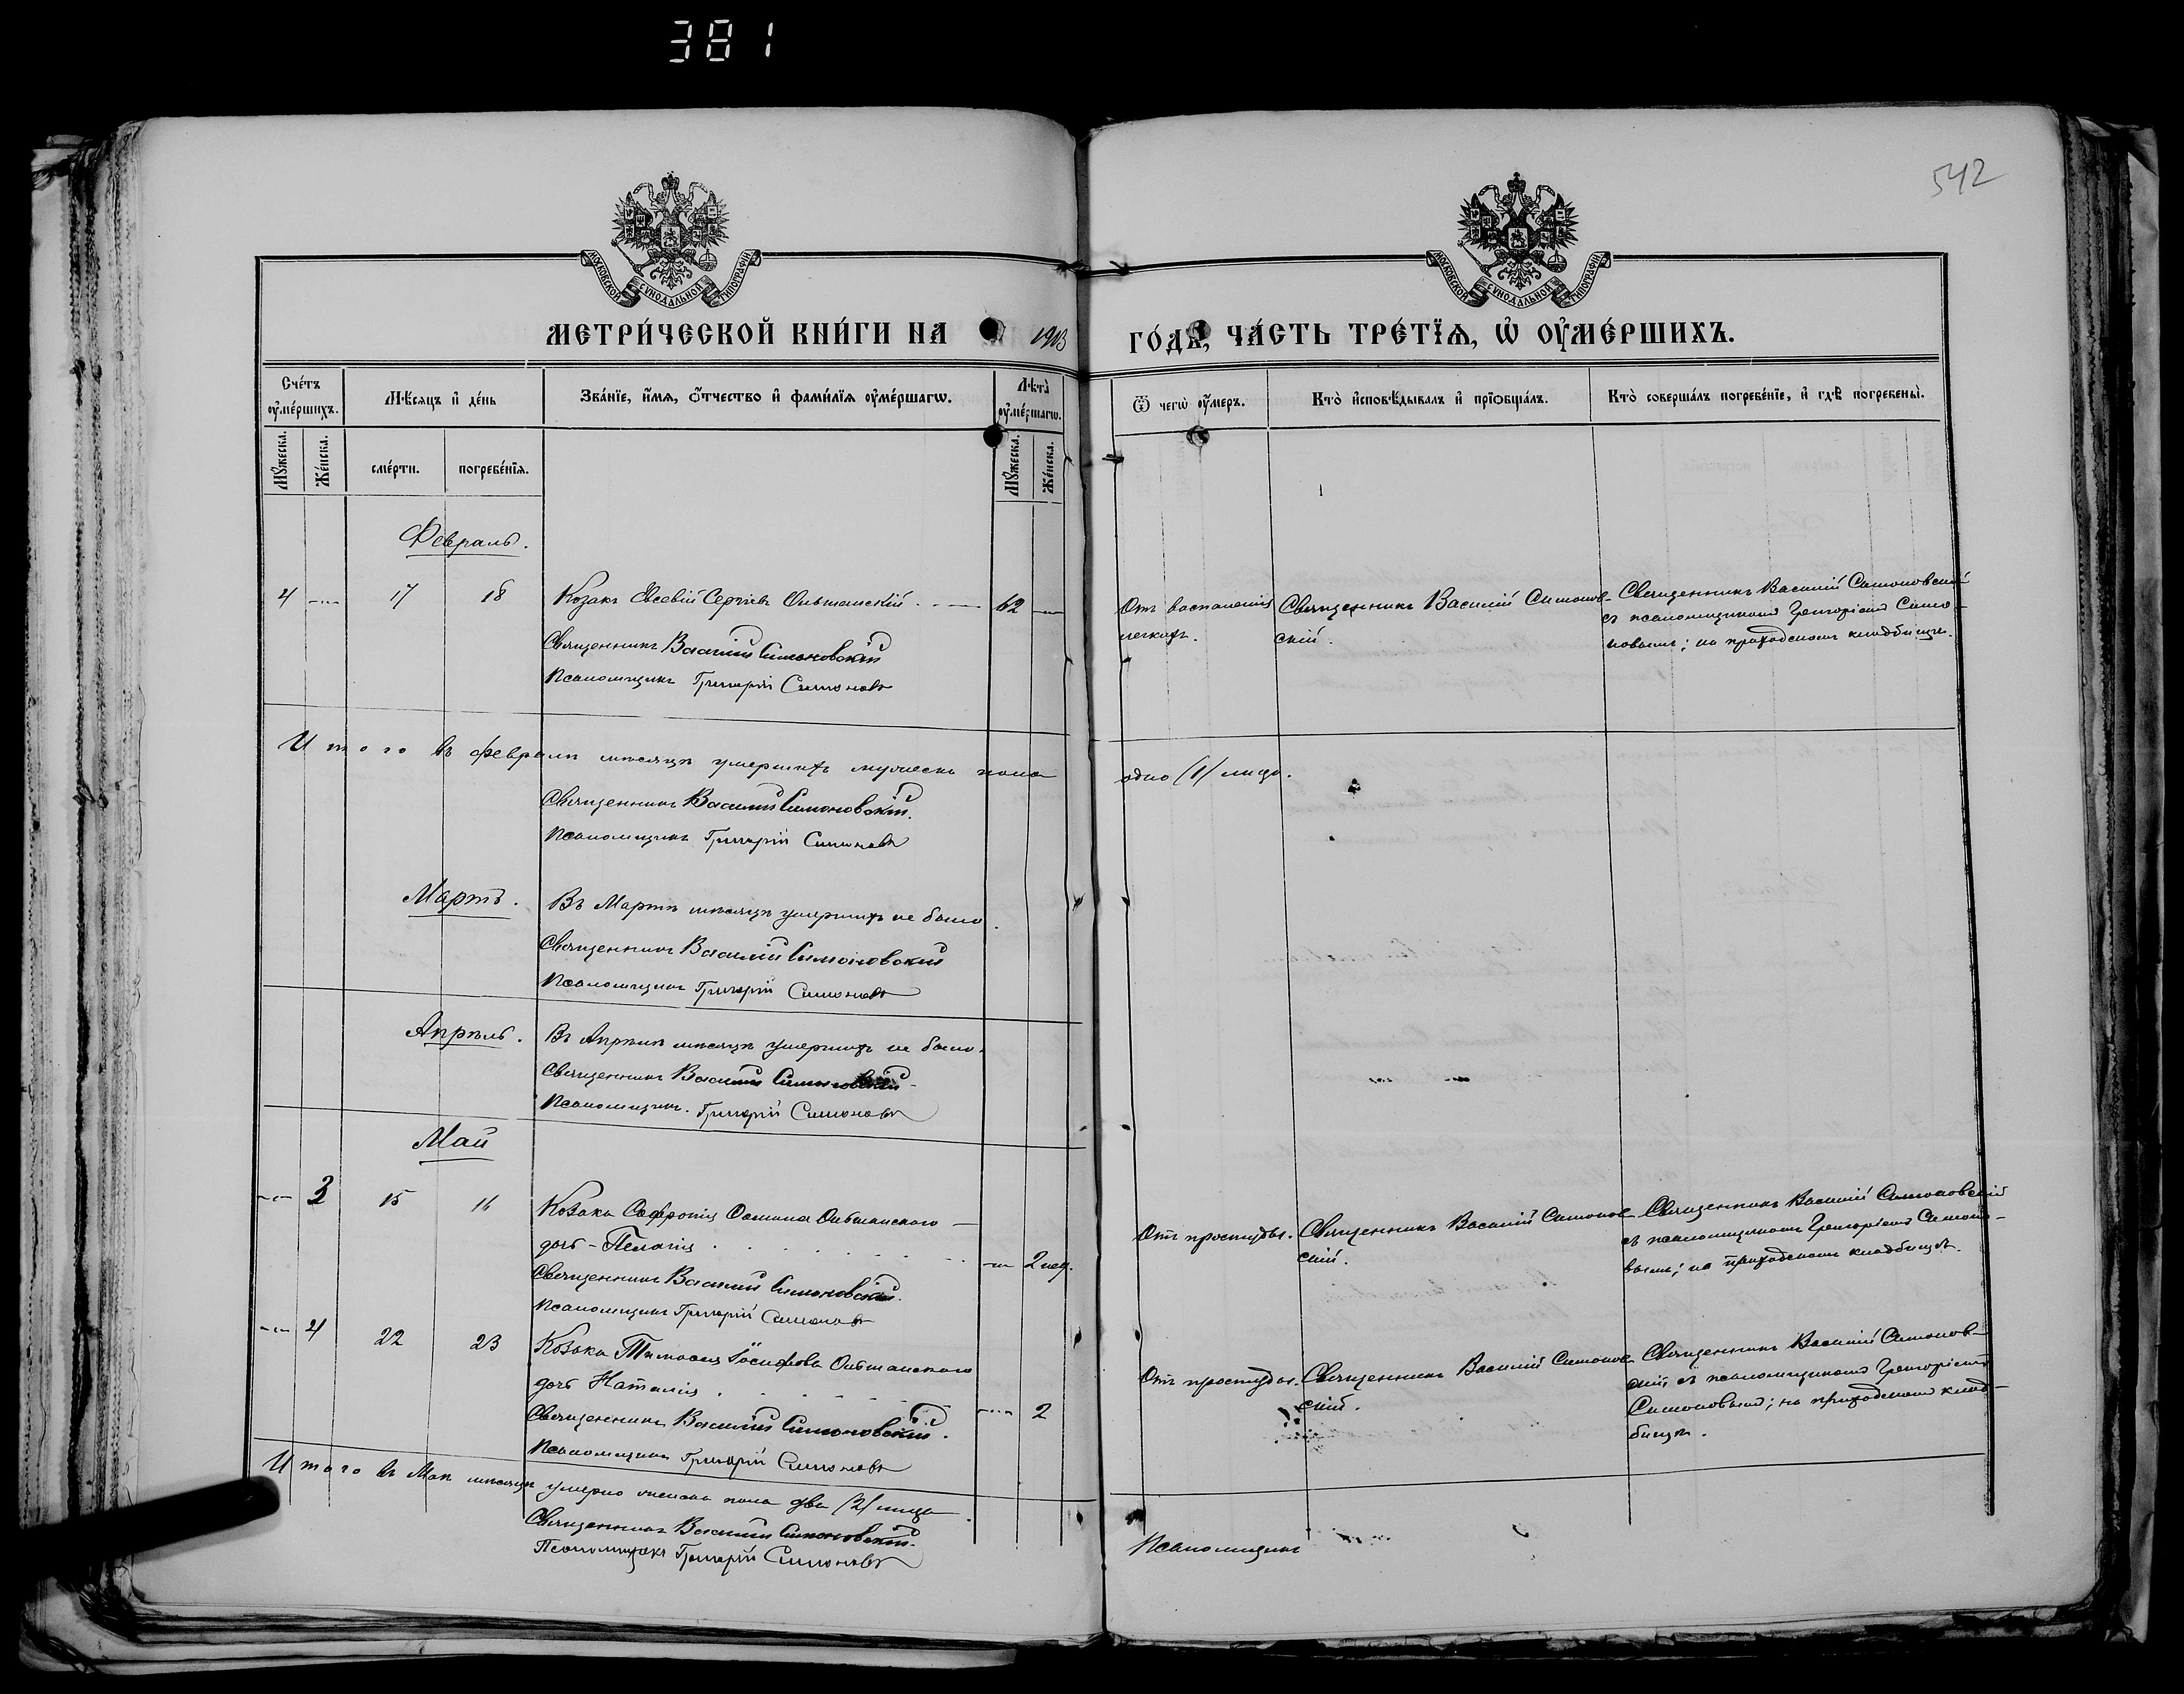 381
542
МОСКОВСКОЙ СѴНОДАЛЬНОЙ ТИПОГРАФІИ
МОСКОВСКОЙ СѴНОДАЛЬНОЙ ТИПОГРАФІИ
МЕТРИ́ЧЕСКОЙ КНИ́ГИ НА 1913 ГО́ДЪ, ЧА́СТЬ ТРЕ́ТЇѦ, Ѡ҆ ОУ҆МЕ́РШИХЪ.
Сче́тъ оу҆ме́ршихъ.
Мѣ́сяцъ и҆ де́нь
Зва́нїе, и҆́мѧ, ѻ҆́тчество и҆ фами́лїѧ оу҆ме́ршагѡ.
Лѣ́та̀ оу҆ме́ршагѡ.
Ѿ чегѡ̀ оу҆́меръ.
Кто̀ и҆сповѣ́дывалъ и҆ прїѡбща́лъ.
Кто̀ соверша́лъ погребе́нїе, и҆ гдѣ̀ погребены̀.
Мꙋ́жеска.
Же́нска.
сме́рти.
погребе́нїѧ.
Мꙋ́жеска.
Же́нска.
Февраль.
4 17 18 Козакъ Евсевій Сергіевъ Ольшанскій 62
Священникъ Василій Симоновскій
Псаломщикъ Григорій Симоновъ
Отъ воспаленія
легкихъ.
Священникъ Василій Симонов-
скій.
Священникъ Василій Симоновскій
съ псаломщикомъ Григоріемъ Симо-
новымъ; на приходскомъ кладбищѣ.
Итого въ февралѣ мѣсяцѣ умершихъ мужеска пола одно /1/ лицо.
Священникъ Василій Симоновскій.
Псаломщикъ Григорій Симоновъ
Мартъ.
Въ Мартѣ мѣсяцѣ умершихъ не было.
Священникъ Василій Симоновскій
Псаломщикъ Григорій Симоновъ
Апрѣль.
Въ Апрѣлѣ мѣсяцѣ умершихъ не было.
Священникъ Василій Симоновскій
Псаломщикъ. Григорій Симоновъ
Май
3 15 16 Козака Софронія Ольшанского
дочь - Пелагія 2 нед.
Священникъ Василій Симоновскій.
Псаломщикъ Григорій Симоновъ
Отъ простуды.
Священникъ Василій Симонов-
скій.
Священникъ Василій Симоновскій
съ псаломщикомъ Григоріемъ Симоно-
вымъ; на приходскомъ кладбищѣ.
4 22 23 Козака Тимофея Іосифова Ольшанского
дочь Наталія 2
Священникъ Василій Симоновскій.
Псаломщикъ Григорій Симоновъ
Отъ простуды.
Священникъ Василій Симонов-
скій.
Священникъ Василій Симонов-
скій съ псаломщикомъ Григоріемъ
Симоновымъ; на приходскомъ клад-
бищѣ.
Итого въ Маѣ мѣсяцѣ умерло женска пола два /2/ лица.
Священникъ Василій Симоновскій.
Псаломщикъ Григорій Симоновъ
Псаломщикъ